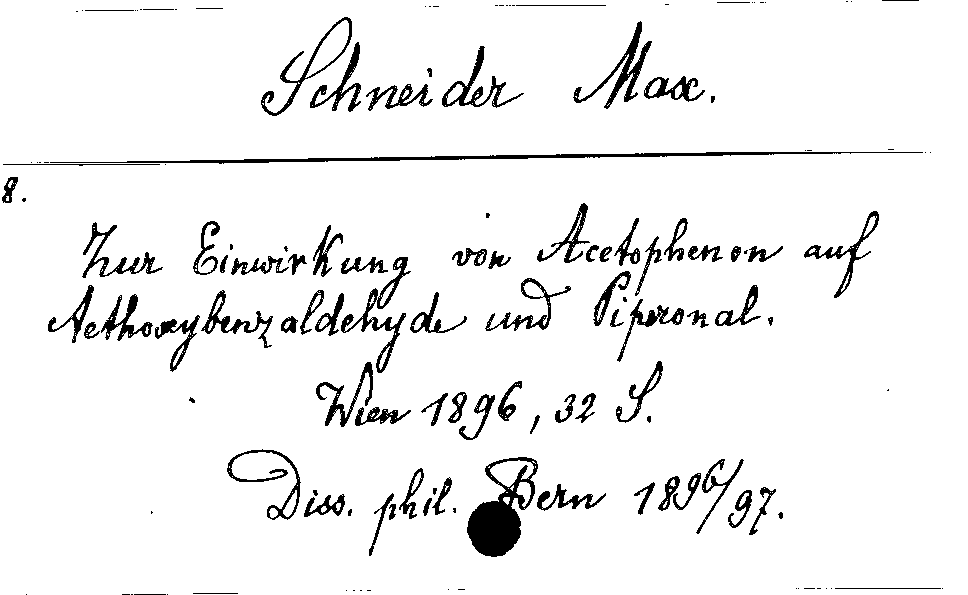 Schneider Max.
8.
Zur Einwirkung von Acetophenon auf
Aethoxybenzaldehyde und Piperonal.
Wien 1896, 32 S.
Diss. phil. Bern 1896/97.